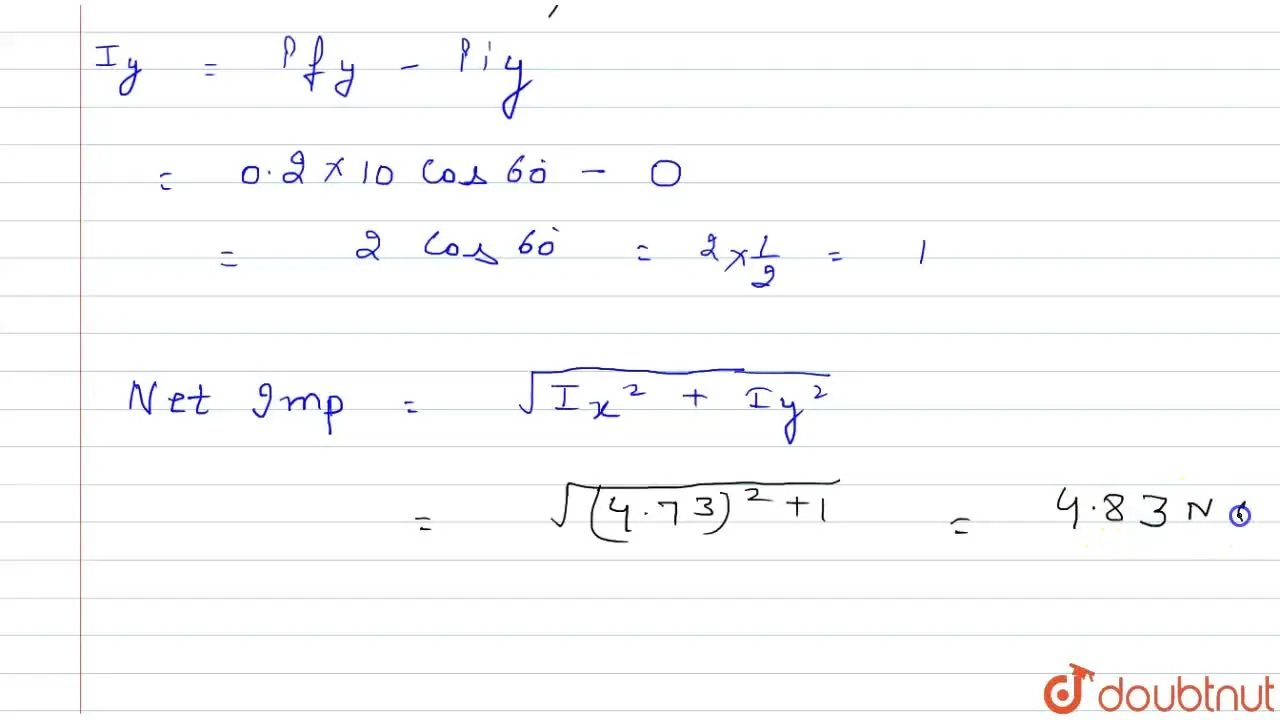 Iy = Pfy - Piy
= 0.2 × 10 cos 60° - 0
= 2 cos 60° = 2 × 1/2 = 1
Net Imp = √(Ix² + Iy²)
= √((4.73)² + 1) = 4.83 N
doubtnut